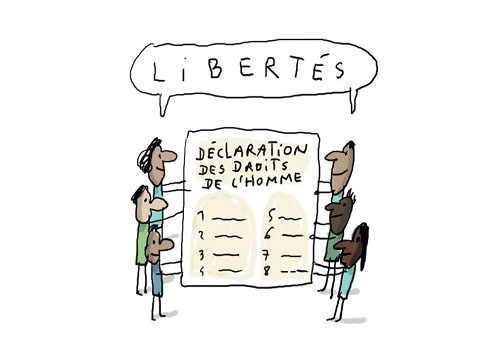 LiBERTÉS
DÉCLARATION
DES DROITS
DE L'HOMME
1
2
3
4
5
6
7
8